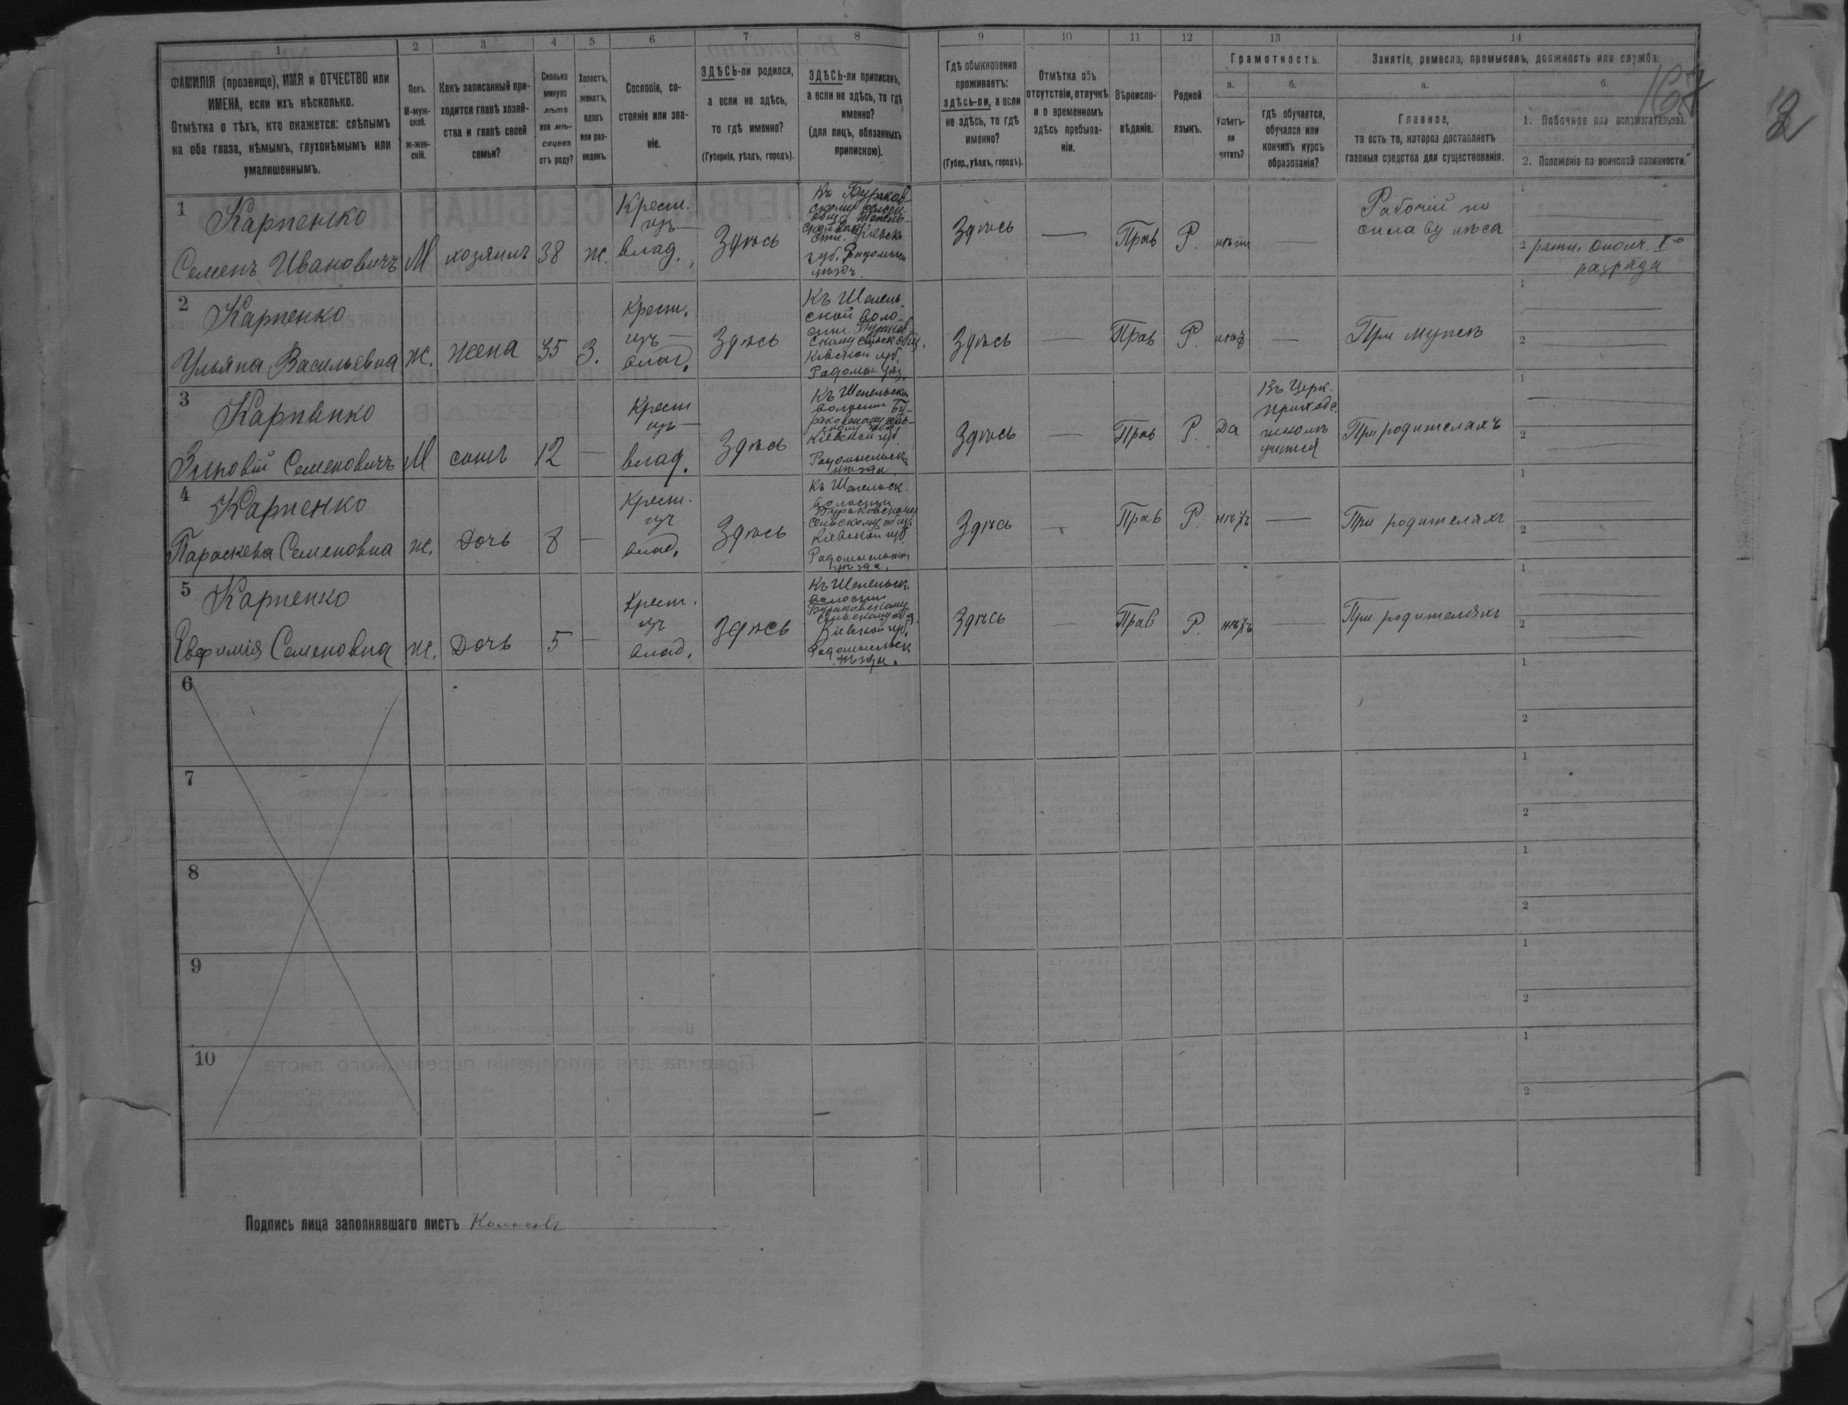 1 2 3 4 5 6 7 8 9 10 11 12 13 14
ФАМИЛІЯ (прозвище), ИМЯ и ОТЧЕСТВО или
ИМЕНА, если ихъ нѣсколько.
Отмѣтка о тѣхъ, кто окажется: слѣпымъ
на оба глаза, нѣмымъ, глухонѣмымъ или
умалишеннымъ.
Полъ.
М-муж-
ской.
ж-жен-
скій.
Какъ записанный при-
ходится главѣ хозяй-
ства и главѣ своей
семьи?
Сколько
минуло
лѣтъ
или мѣ-
сяцевъ
отъ роду?
Холостъ,
женатъ,
вдовъ
или раз-
веденъ.
Сословіе, со-
стояніе или зва-
ніе.
ЗДѢСЬ-ли родился,
а если не здѣсь,
то гдѣ именно?
(Губернія, уѣздъ, городъ).
ЗДѢСЬ-ли приписанъ,
а если не здѣсь, то гдѣ
именно?
(для лицъ, обязанныхъ
припискою).
Гдѣ обыкновенно
проживаетъ:
здѣсь-ли, а если
не здѣсь, то гдѣ
именно?
(Губер., уѣздъ, городъ).
Отмѣтка объ
отсутствіи, отлучкѣ
и о временномъ
здѣсь пребыва-
ніи.
Вѣроиспо-
вѣданіе.
Родной
языкъ.
Грамотность.
а.
Умѣетъ-
ли
читать?
б.
гдѣ обучается,
обучался или
кончилъ курсъ
образованія?
Занятіе, ремесло, промыселъ, должность или служба.
а.
Главное,
то есть то, которое доставляетъ
главныя средства для существованія.
б.
1. Побочное или вспомогательное.
2. Положеніе по воинской повинности.
12
1 Карпенко
Семенъ Ивановичъ М хозяинъ 38 ж.
Крест.
изъ
влад.
Здѣсь
Здѣсь — Прав Р. нѣтъ —
Рабочій по
1
2 ратн. ополч. I го
разряда
2 Карпенко
Ульяна Васильевна ж. жена 35 З.
Крест.
изъ
влад.
Здѣсь
Къ Шепель-
ской воло-
сти
Кіевской губ.
Здѣсь — Прав Р. нѣтъ — При мужѣ
1
2
3 Карпенко
Зиновій Семеновичъ М сынъ 12 —
Крест
изъ
влад.
Здѣсь
Кіевской губ.
Здѣсь — Прав Р. Да
Въ Церк.
приход.
школѣ
учится
При родителяхъ
1
2
4 Карпенко
Параскева Семеновна ж. Дочь 8 —
Крест.
изъ
влад.
Здѣсь
Къ Шепельск.
волости
Бураковскому
сельскому общ.
Кіевской губ.
Здѣсь — Прав Р. нѣтъ — При родителяхъ
1
2
5 Карпенко
Евфимія Семеновна ж. Дочь 5 —
Крест.
изъ
влад.
Здѣсь
Къ Шепельск.
волости
Бураковскому
Кіевской губ.
Здѣсь — Прав Р. нѣтъ — При родителяхъ
1
2
6
1
2
7
1
2
8
1
2
9
1
2
10
1
2
Подпись лица заполнявшаго листъ